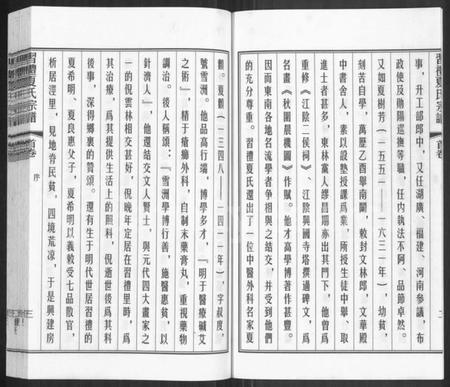 習禮夏氏宗譜
首卷
二
事，升工部郎中，又任湖廣、福建、河南參議，布
政使及勛陽巡撫等職，任內執法不阿，品節卓然。
又如夏樹芳（一五五一——一六三一年），幼貧，
刻苦自學，萬歷乙酉舉南闈，敕封文林郎，文華殿
中書舍人，素以設塾授課爲業，所授生徒中舉、取
進士者甚多，東林黨人繆昌期亦出其門下，他曾爲
重修《江陰二侯祠》、江陰興國寺塔撰過碑文，爲
名畫《秋圃晨機圖》作賦。他才高學博著作甚豐。
因而東南各地名流學者爭相與之結交，并受到他們
的充分尊重。習禮夏氏還出了一位中醫外科名家夏
顴。夏顴（一三四八——一四一一年），字叔度，
號雪洲。他品高行端，博學多才，『明于醫療碱艾
之術』，精于瘡瘍外科，自制末藥膏丸，重視藥物
調治。後人稱頌：『雪洲學博行善，施醫惠貧，以
針濟人』，他還結交文人賢士，與元代四大畫家之
一的倪雲林相交甚好，倪晚年定居在習禮里時，爲
其治療，爲其提供生活上的照料，倪逝世後爲其料
後事，深得鄉裏的贊頌。還有生于明代世居習禮的
夏希明、夏良惠父子，夏希明以義敕受七品散官，
析居涇里，見地脊民貧，四境荒凉，于是興建房
習禮夏氏宗譜
首卷
序